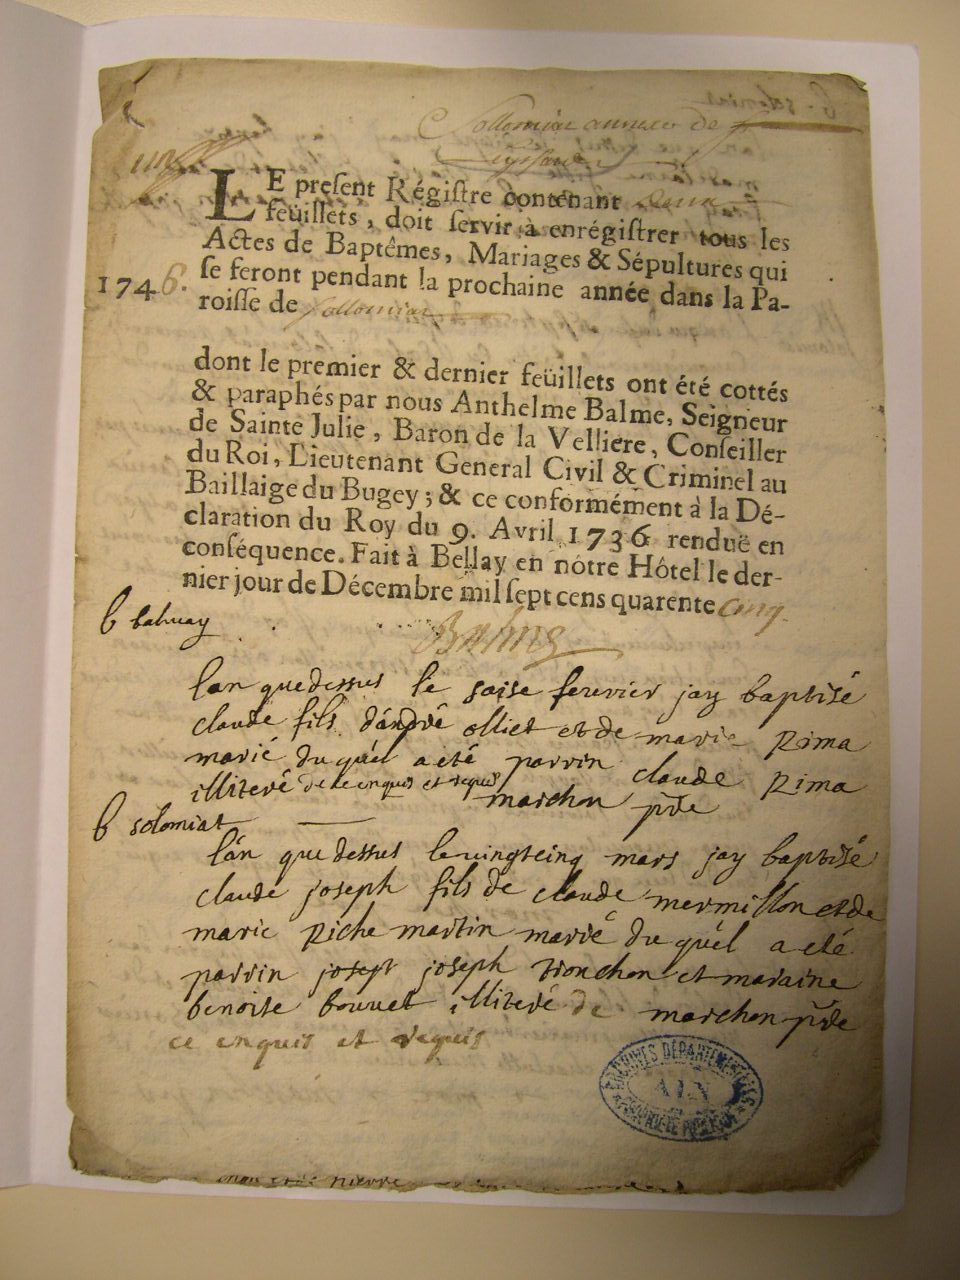 Sollomiat annexe de
LE present Régistre contenant Deux
feüillets, doit servir à enrégistrer tous les
Actes de Baptêmes, Mariages & Sépultures qui
se feront pendant la prochaine année dans la Pa-
1746.
roisse de Sollomiat
dont le premier & dernier feüillets ont été cottés
& paraphés par nous Anthelme Balme, Seigneur
de Sainte Julie, Baron de la Velliere, Conseiller
du Roi, Lieutenant General Civil & Criminel au
Baillaige du Bugey; & ce conformément à la Dé-
claration du Roy du 9. Avril 1736 renduë en
conséquence. Fait à Bellay en nôtre Hôtel le der-
nier jour de Décembre mil sept cens quarente cinq.
Balme
b balvay
lan que dessus le saise fevrier jay baptisé
claude fils d'andré olliet et de marie pima
marié du quel a eté parrin claude pima
illiteré de ce enquis et requis
marchon ptre
b solomiat
l'an que dessus le vingt cinq mars jay baptisé
claude joseph fils de claude mermillon et de
marie piche martin marié du quel a eté
parrin josept joseph tronchon et maraine
benoite bouvet illiteré de marchon ptre
ce enquis et requis
ARCHIVES DÉPARTEMENTALES
AIN